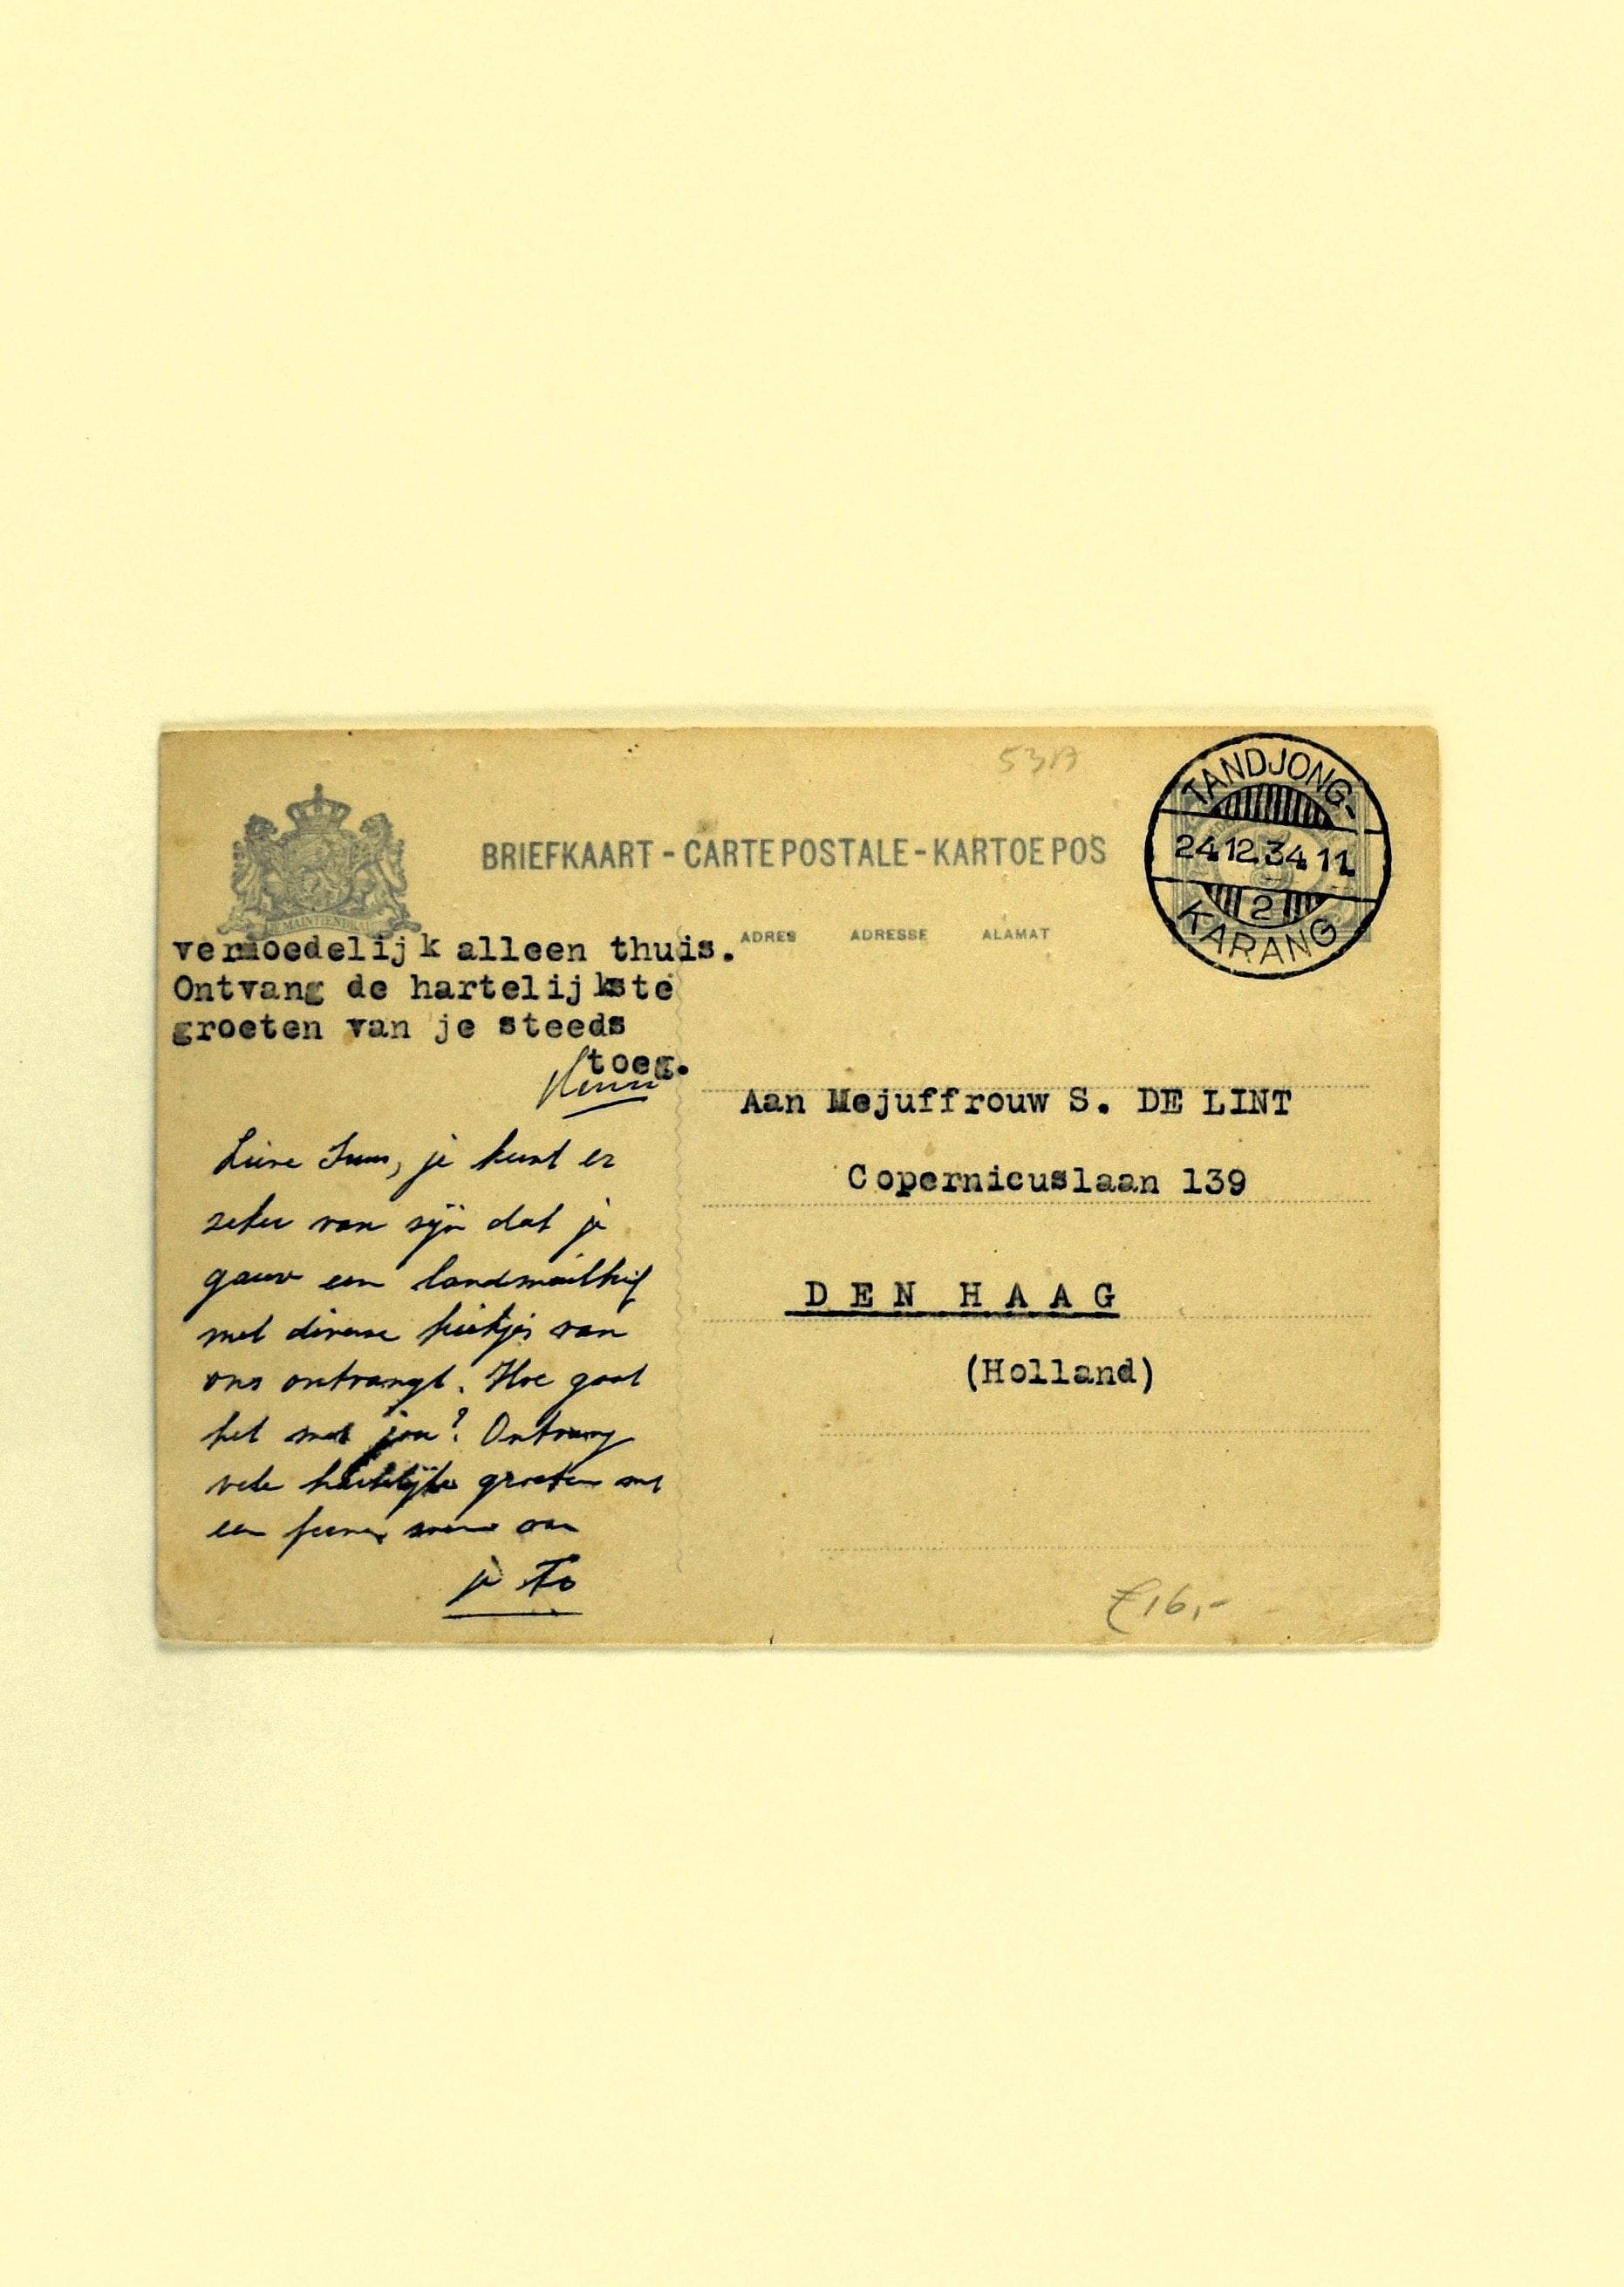 53A
TANDJONG-
24.12.34 11
2
KARANG
BRIEFKAART - CARTE POSTALE - KARTOE POS
JE MAINTIENDRAI
ADRES ADRESSE ALAMAT
vermoedelijk alleen thuis.
Ontvang de hartelijkste
groeten van je steeds
toeg.
Lieve Suus, je kunt er
zeker van zijn dat je
gauw een landmailbrief
met diverse kiekjes van
ons ontvangt. Hoe gaat
het met jou? Ontvang
vele hartelijke groeten met
een van
je To
Aan Mejuffrouw S. DE LINT
Copernicuslaan 139
DEN HAAG
(Holland)
€ 16,-